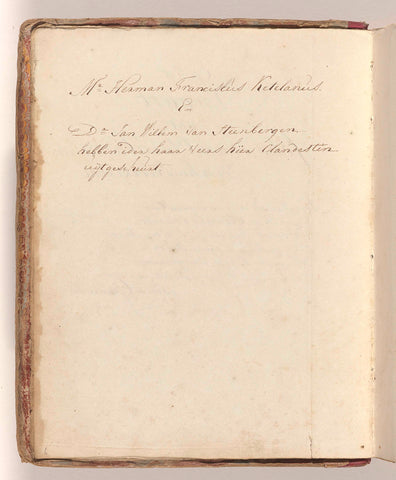 Mr. Herman Franciscus Ketelanus.
En
Dr. Jan Willem van Steenbergen
hebben ider haar veers hier Clandestin
uytgescheurt.